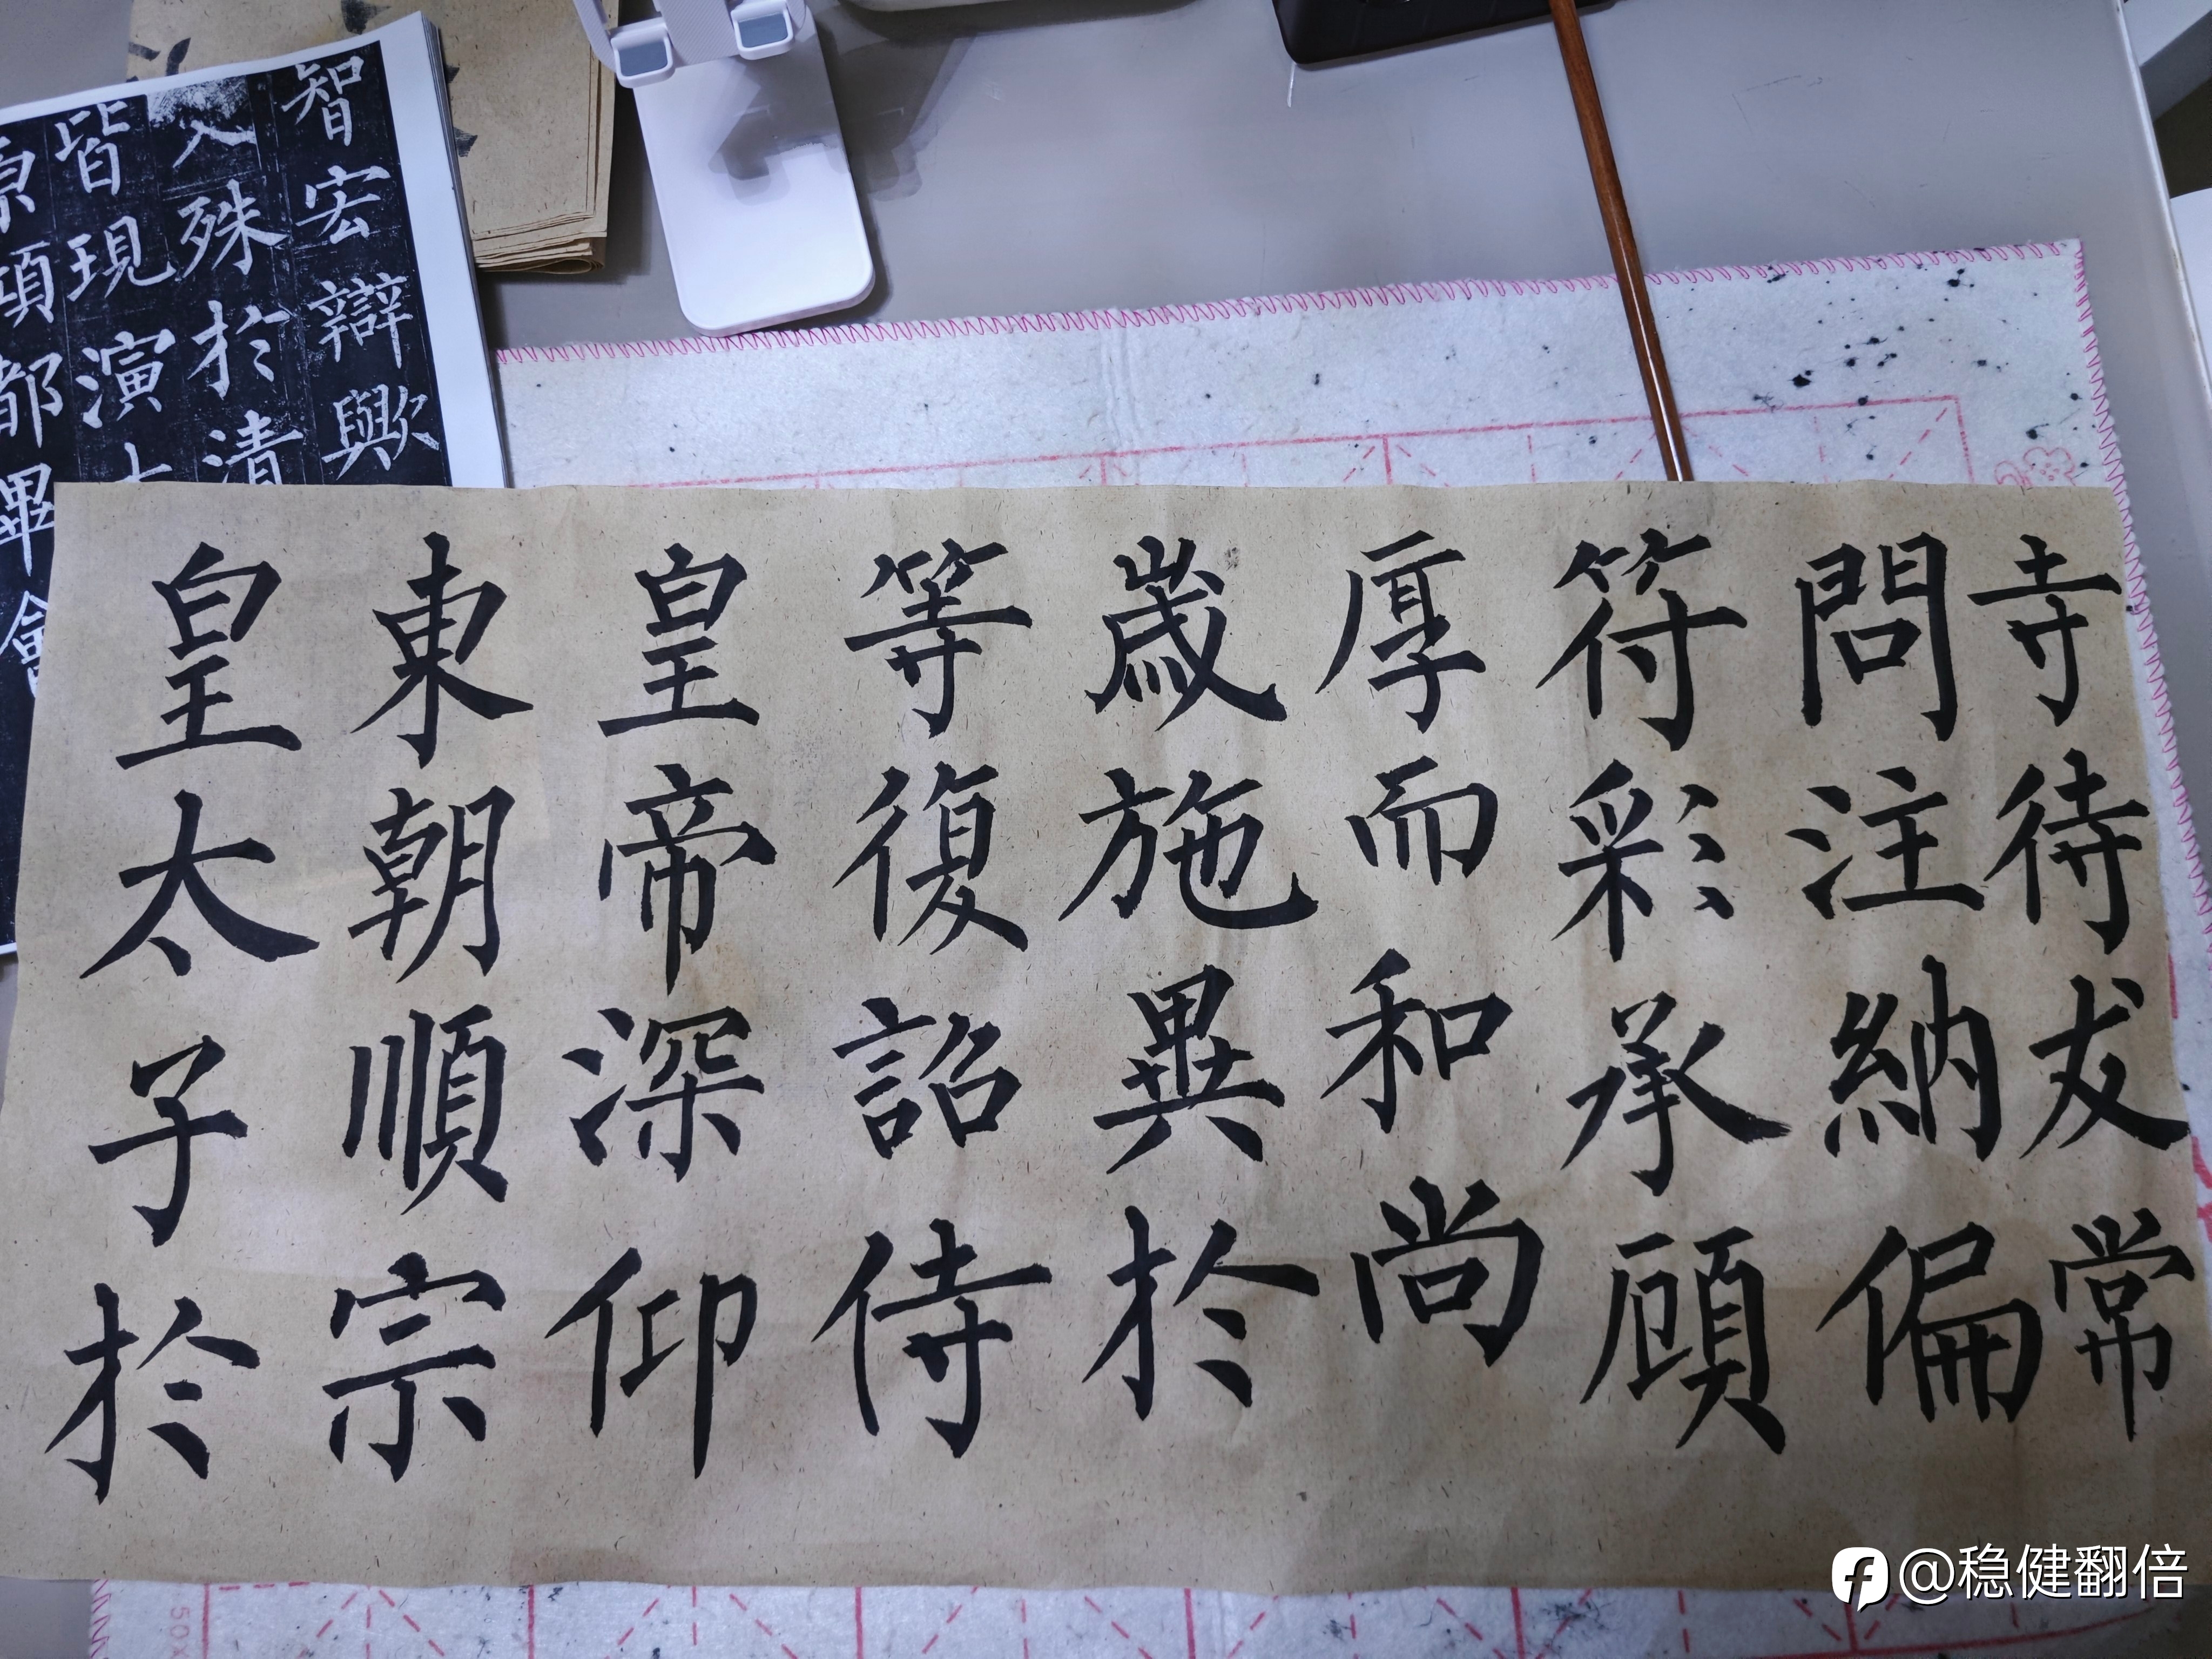 智宏辯歟
殊於清
皆現演
原傾都畢會
寺待友常
問注納偏
符彩承顧
厚而和尚
歲施異於
等復詔侍
皇帝深仰
東朝順宗
皇太子於
@稳健翻倍